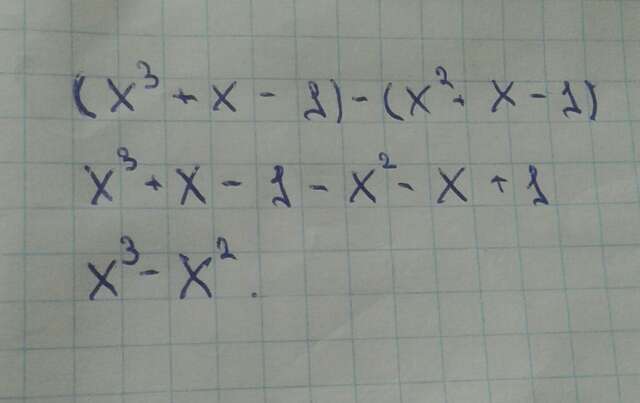 (x³ + x - 1) - (x² + x - 1)
x³ + x - 1 - x² - x + 1
x³ - x².